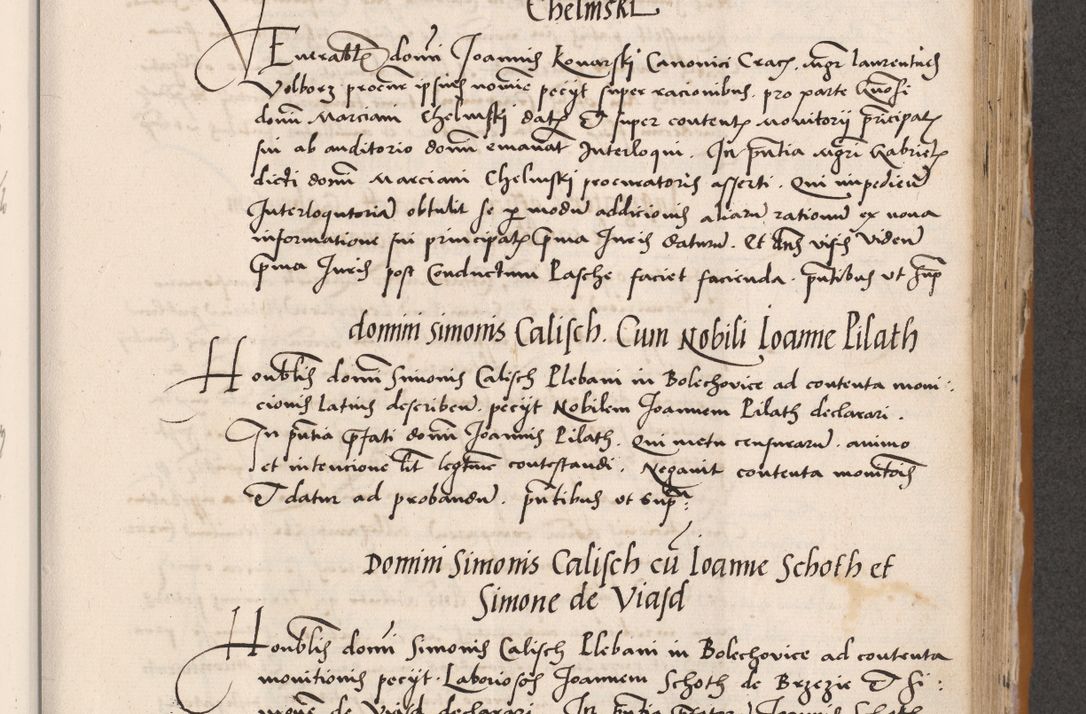 Chelmski
Venerabilis domini Joannis Konarski Canonici Crac. mgr laurentius
Volborz procur ipsius nomine peciit super racionibus pro parte Gnosi
domini Marciani Chelmski dat et super content monitorii principat
sui ab auditorio domini emanat Interloqui. In pntia mgri Gabriel
dicti domini Marciani Chelmski procuratoris asserti. Qui impediend
Interloqutoria obtulit se per modum addicionis aliarum rationum ex nova
informatione sui principat prima Juris datur. Et dns visis viden
prima Juris post Conductum Pasche faciet facienda. pntibus ut supra
domini Simonis Calisch. Cum Nobili Joanne Pilath
Honoblis domini Simonis Calisch Plebani in Bolechovice ad contenta moni:
cionis latius describen. peciit Nobilem Joannem Pilath declarari.
In pntia pfati domini Joannis Pilath. Qui metu censurarum. animo
et intencione lit legitime contestandi. Negavit contenta monitois
Et datur ad probandum. pntibus ut supra:
Domini Simonis Calisch cu Joanne Schoth et
Simone de Viasd
Honoblis domini Simonis Calisch Plebani in Bolechovice ad contenta
monitionis peciit Laboriosos Joannem Schoth de Brzezie et Si:
monem de Viasd declarari. In pntia Joannis Schoth